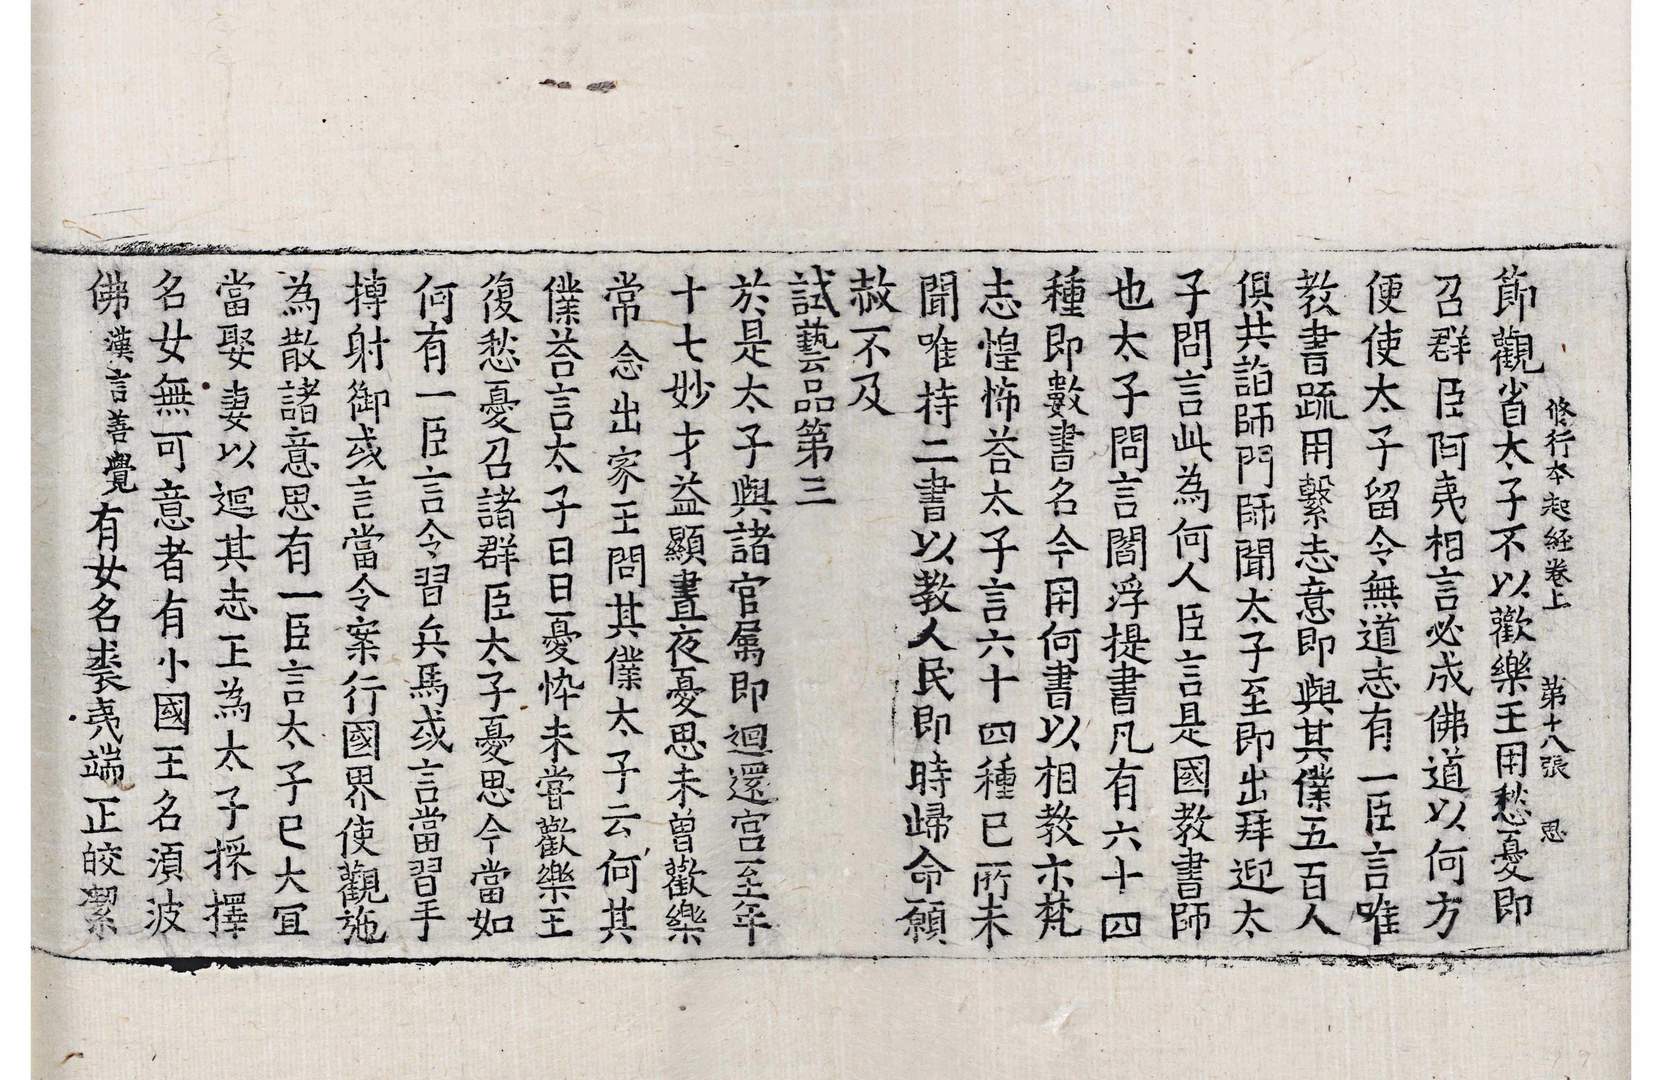 修行本起経卷上 第十八張 思
節觀省太子不以歡樂王用愁憂即
召群臣阿夷相言必成佛道以何方
便使太子留令無道志有一臣言唯
教書䟽用繫志意即與其僕五百人
俱共詣師門師聞太子至即出拜迎太
子問言此為何人臣言是國教書師
也太子問言閻浮提書凡有六十四
種即數書名今用何書以相教尒梵
志惶怖荅太子言六十四種已所未
聞唯持二書以教人民即時歸命願
赦不及
試藝品第三
於是太子與諸官属即迴還宫至年
十七妙才益顯晝夜憂思未曾歡樂
常念出家王問其僕太子云何其
僕荅言太子日日憂悴未嘗歡樂王
復愁憂召諸群臣太子憂思今當如
何有一臣言令習兵馬或言當習手
搏射御或言當令案行國界使觀施
為散諸意思有一臣言太子已大冝
當娶妻以迴其志王為太子採擇
名女無可意者有小國王名湏波
佛漢言善覺有女名裘夷端正皎潔